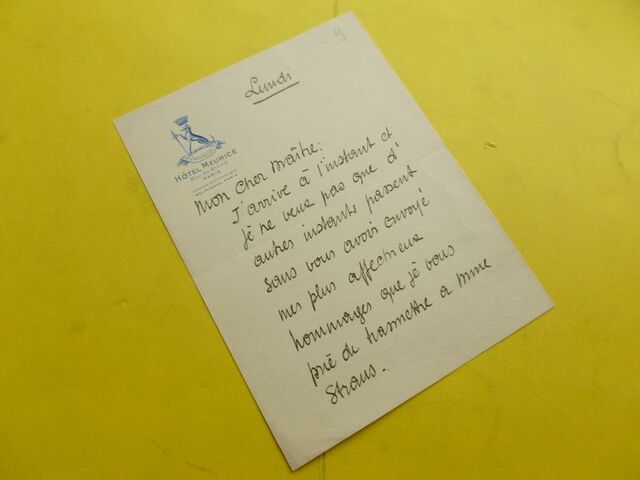 Lundi
HÔTEL MEURICE
Rue de Rivoli
PARIS
Mon Cher Maître:
J'arrive à l'instant et
je ne veux pas que d'
autres instants passent
sans vous avoir envoyé
mes plus affectueux
hommages que je vous
prie de trasmettre a Mme
Straus.